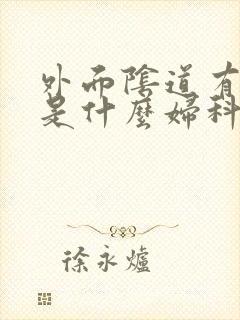 外而陰道有
是什麼婦科
徐永爐